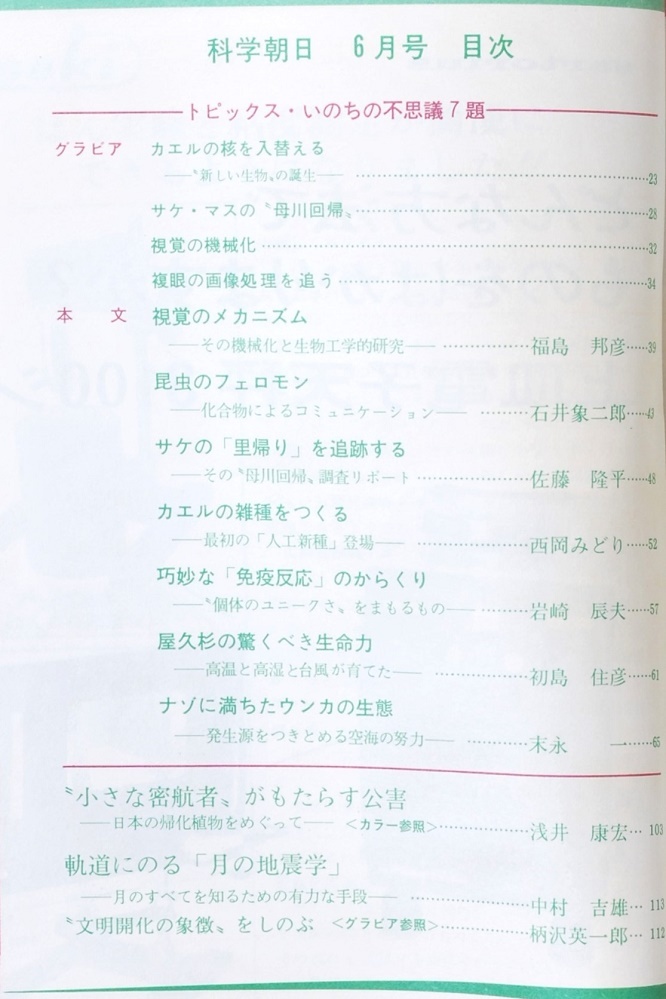 科学朝日 6月号 目次
トピックス・いのちの不思議7題
グラビア カエルの核を入替える
――〝新しい生物〟の誕生――……23
サケ・マスの〝母川回帰〟……28
視覚の機械化……32
複眼の画像処理を追う……34
本文 視覚のメカニズム
――その機械化と生物工学的研究――……福島 邦彦……39
昆虫のフェロモン
――化合物によるコミュニケーション――……石井象二郎……43
サケの「里帰り」を追跡する
――その〝母川回帰〟調査リポート……佐藤 隆平……48
カエルの雑種をつくる
――最初の「人工新種」登場――……西岡みどり……52
巧妙な「免疫反応」のからくり
――〝個体のユニークさ〟をまもるもの――……岩崎 辰夫……57
屋久杉の驚くべき生命力
――高温と高湿と台風が育てた――……初島 住彦……61
ナゾに満ちたウンカの生態
――発生源をつきとめる空海の努力――……末永 一……65
〝小さな密航者〟がもたらす公害
――日本の帰化植物をめぐって―― <カラー参照>……浅井 康宏…103
軌道にのる「月の地震学」
――月のすべてを知るための有力な手段――……中村 吉雄…113
〝文明開化の象徴〟をしのぶ <グラビア参照>……柄沢英一郎…112